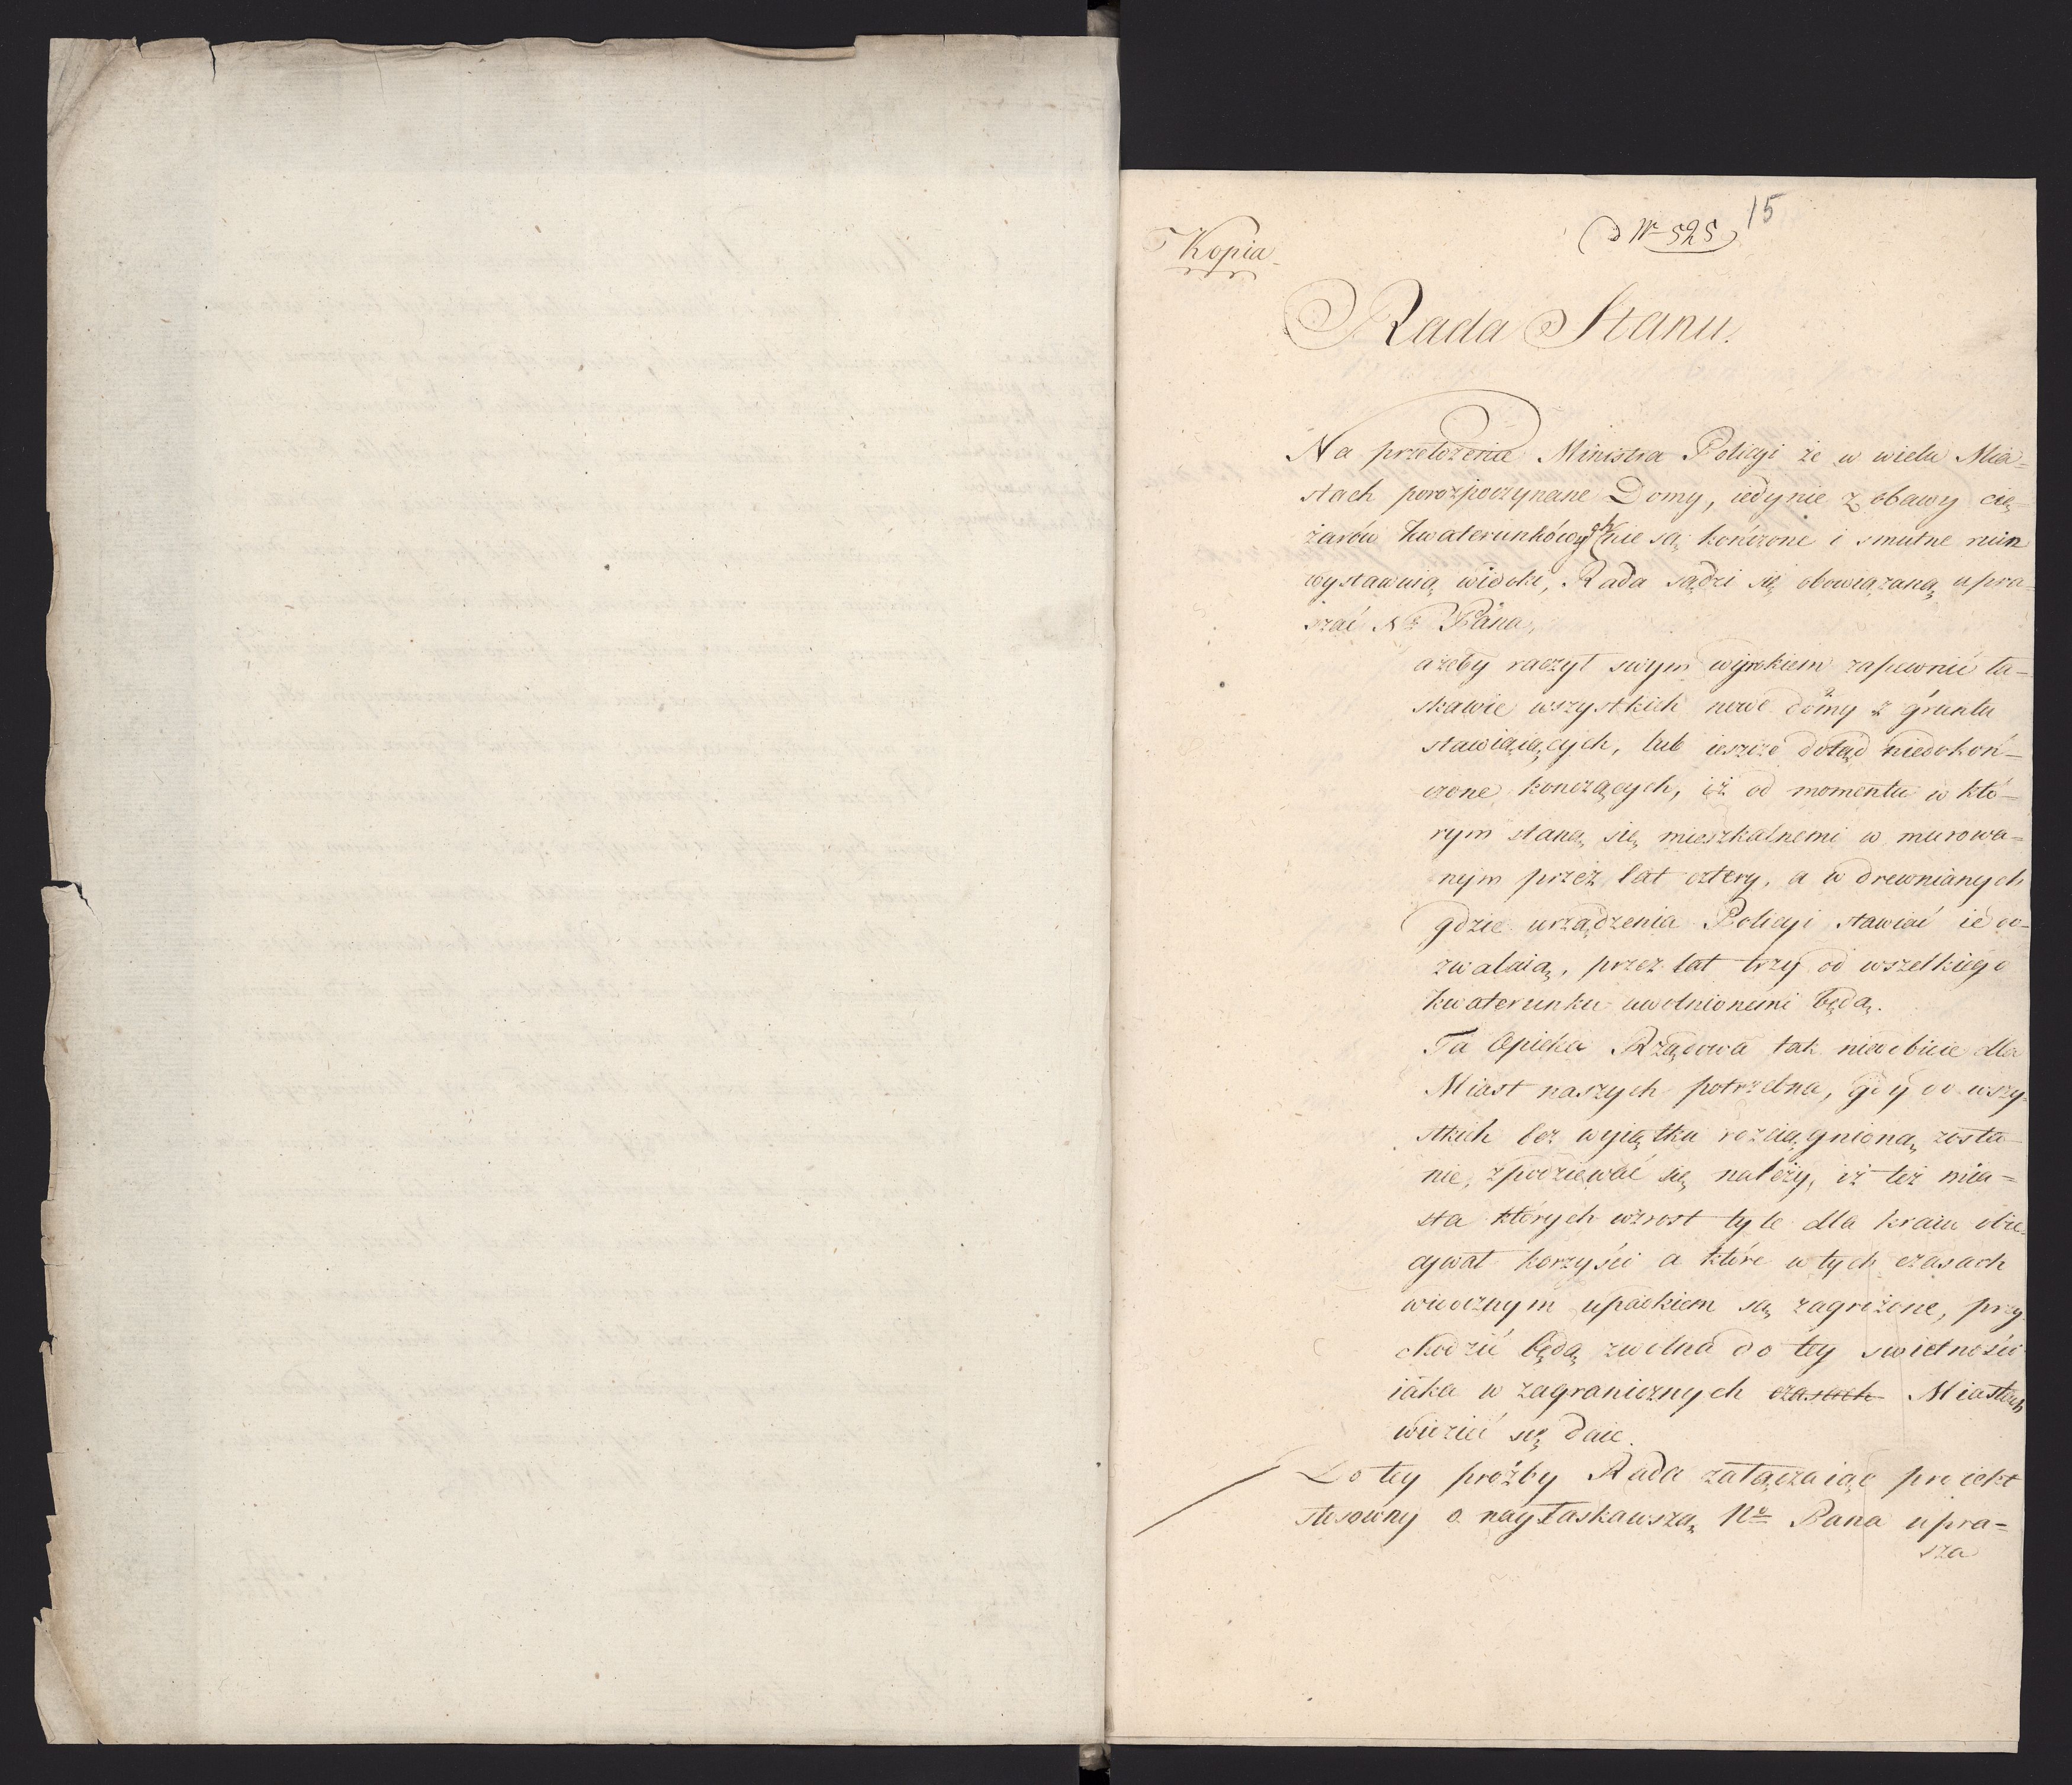 15
d N 525
Kopia
Rada Stanu.
Na przełożenie Ministra Policyi że w wielu Mia=
stach porozpoczynane Domy, iedynie z obawy cię=
żarów kwaterunkówych nie są kończone i smutne ruin
wystawuią widoki, Rada sądzi się obowiązaną upra=
szać N° Pana,
ażeby raczył swym wyrokiem zapewnić ła=
skawie wszystkich nowe domy z gruntu
stawiaiących, lub ieszcze dotąd niedokoń=
czone kończących, iż od momentu w któ=
rym staną się mieszkalnemi w murowa=
nym przez lat cztery, a w drewnianych
gdzie urządzenia Policyi stawiać ie do=
zwalaią, przez lat trzy od wszelkiego
kwaterunku uwolnionemi będą.
Ta Opieka Rządowa tak niewbicie dla
Miast naszych potrzebna, gdy do wszy=
stkich bez wyiątku rozciągnioną zosta=
nie, zpodziewać się należy, iż też mia=
sta których wzrost tyle dla kraiu obie=
cywał korzyści a które w tych czasach
widocznym upadkiem są zagrożone, przy
chodzić będą zwolna do tey swietności
iaka w zagranicznych czasach Miastach
widzieć się daie.
Do tey prożby Rada załączaiąc proiekt
stosowny o nayłaskawszą N° Pana upra=
sza